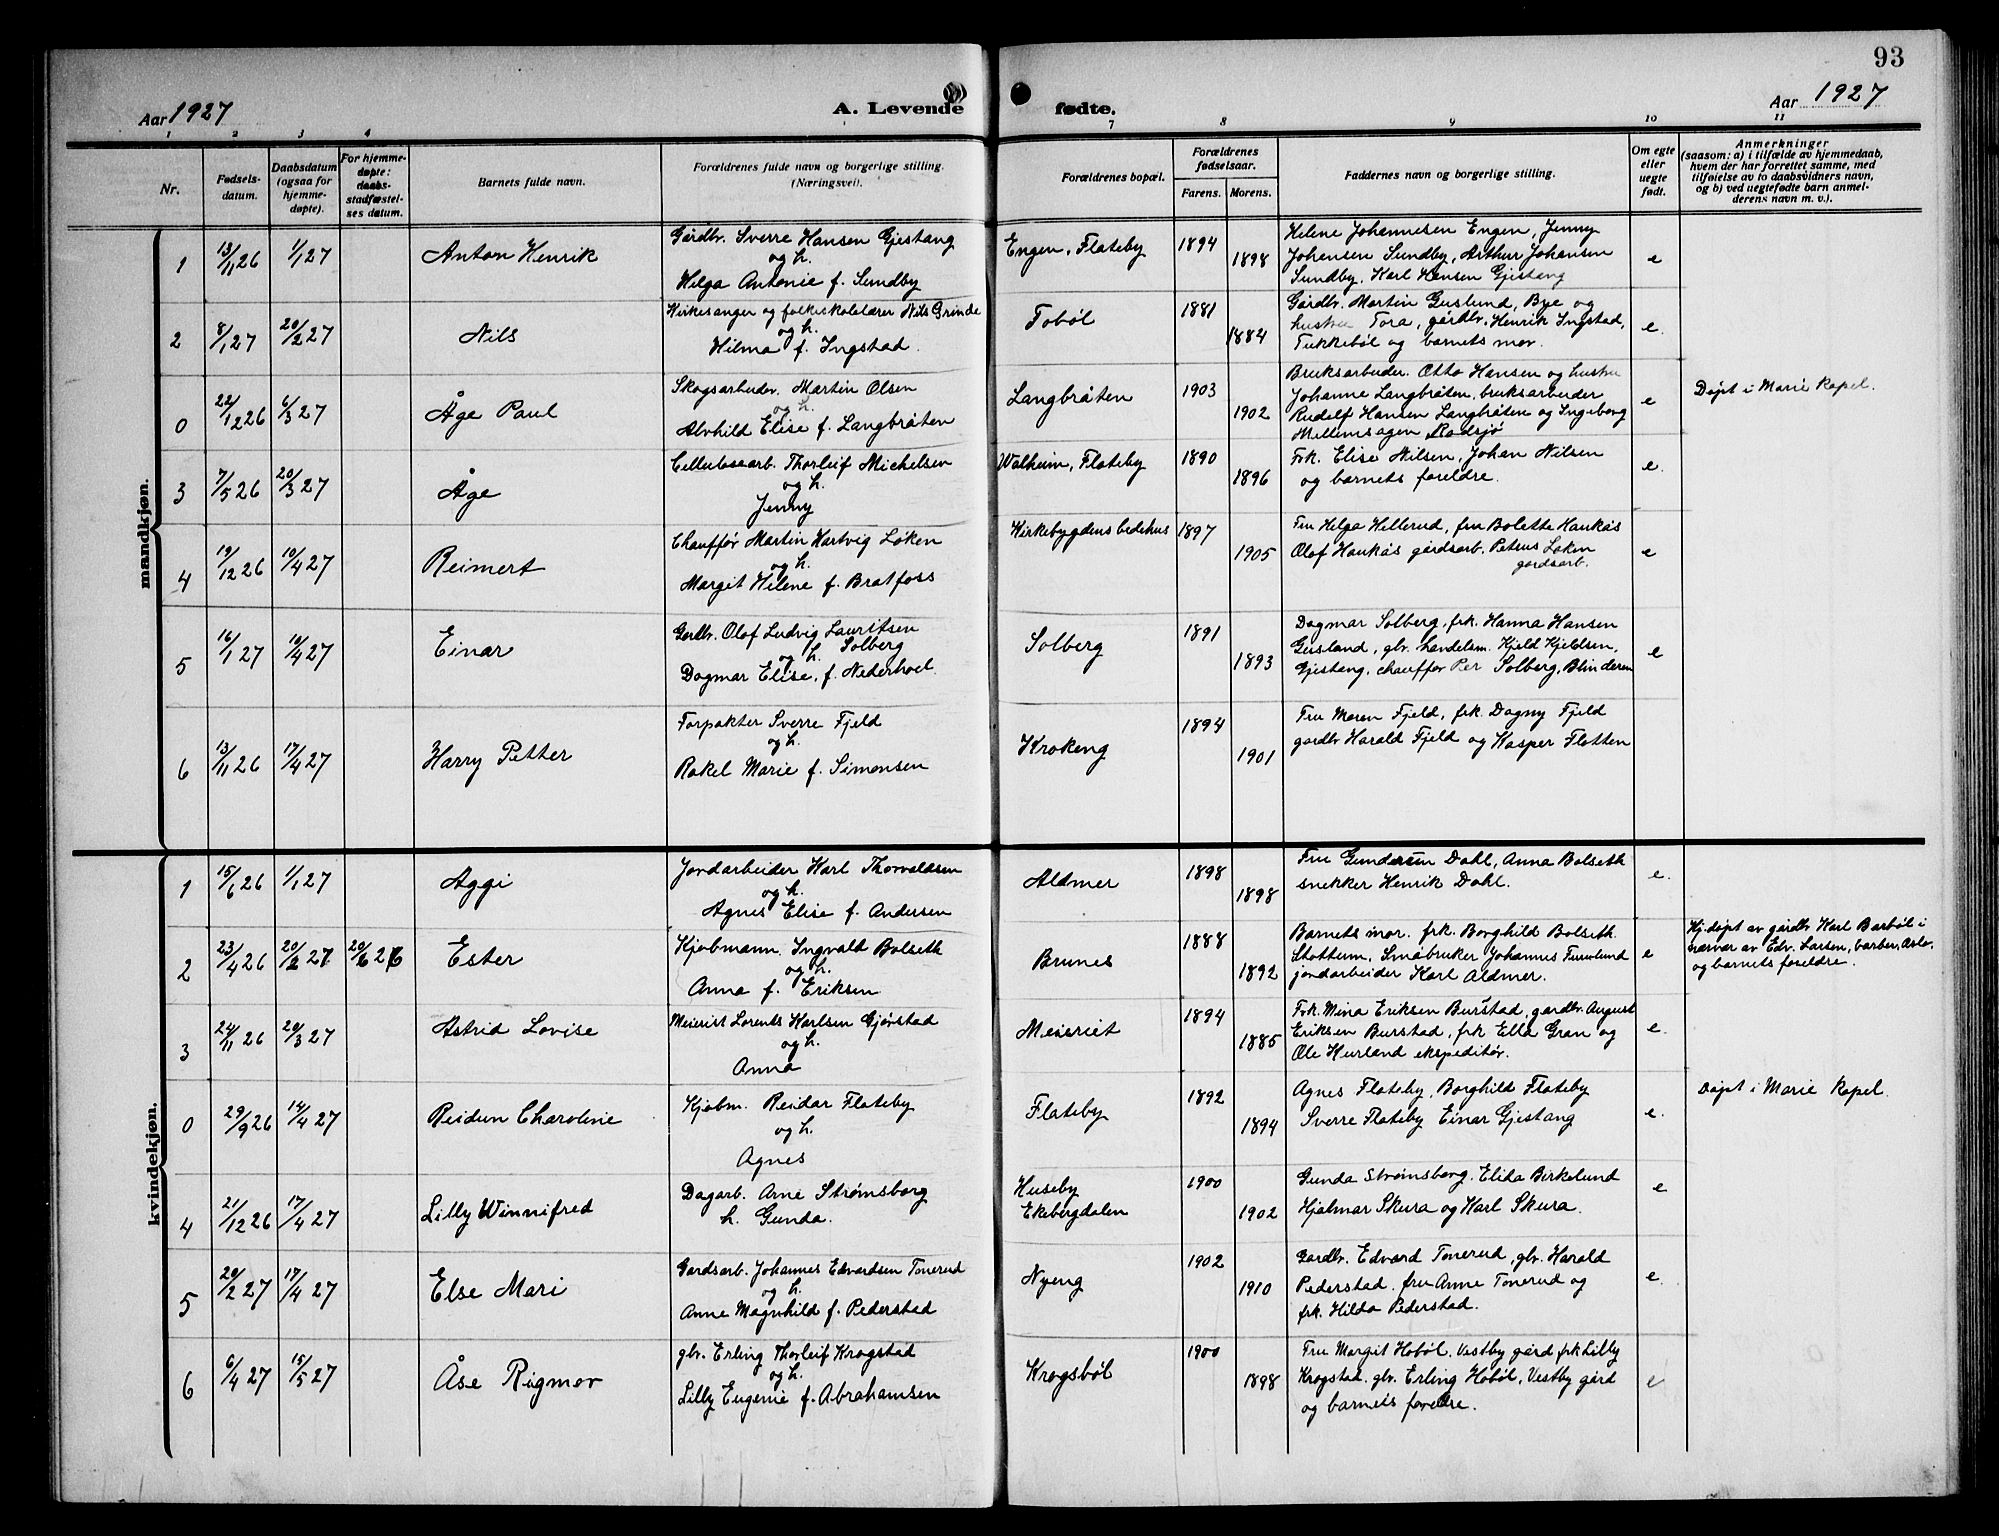 93
Aar 1927
A. Levende fødte.
Aar 1927
1 2 3 4 7 8 9 10 11
Nr.
Fødsels-
datum.
Daabsdatum
(ogsaa for
hjemme-
døpte).
For hjemme-
døpte:
daabs-
stadfæstel-
ses datum.
Barnets fulde navn.
Forældrenes fulde navn og borgerlige stilling.
(Næringsvei).
Forældrenes bopæl.
Forældrenes
fødselsaar.
Farens. Morens.
Faddernes navn og borgerlige stilling.
Om egte
eller
uegte
født.
Anmerkninger
(saasom: a) i tilfælde av hjemmedaab,
hvem der har forrettet samme, med
tilføielse av to daabsvidners navn,
og b) ved uegtefødte barn anmel-
derens navn m. v.).
mandkjøn.
1 13/11 26 1/1 27 Anton Henrik
Gårdbr. Sverre Hansen Gjestang
og h.
Helga Antonie f. Sundby
Engen, Flateby 1894 1898
Helene Johannesen Engen, Jenny
Johansen Sundby, Arthur Johansen
Sundby, Karl Hansen Gjestang
e
2 8/1 27 20/2 27 Nils
Kirkesanger og folkeskolelærer Nils Grinde
og h.
Hilma f. Ingstad.
Tobøl 1881 1884
Gårdbr. Martin Guslund, Bye og
hustru Tora, gårdbr. Henrik Ingstad,
Tukkebøl og barnets mor.
e.
0 22/12 26 6/3 27 Åge Paul
Skogsarbeider Martin Olsen
og h.
Alvhild Elise f. Langbråten
Langbråten 1903 1902
Bruksarbeider Otto Hansen og hustru
Johanne Langbråten, bruksarbeider
Rudolf Hansen Langbråten og Ingeborg
Mellemsagen, Rødsjø
e
Døpt i Marie Kapel.
3 7/5 26 20/3 27 Åge
Cellulosearb. Thorleif Michelsen
og h.
Jenny
Walheim, Flateby 1890 1896
Frk. Elise Nilsen, Johan Nilsen
og barnets foreldre.
e.
4 19/12 26 10/4 27 Reimert
Chauffør Martin Hartvig Løken
og h.
Margit Helene f. Bratfoss
Kirkebygdens bedehus 1897 1905
Fru Helga Hellerud, fru Bolette Haukås
Olaf Haukås gårdsarb. Petrus Løken
gårdsarb.
e
5 16/1 27 10/4 27 Einar
Gårdbr. Olaf Ludvig Lauritsen
Solberg
og h.
Dagmar Elise, f. Nederhoel
Solberg 1891 1893
Dagmar Solberg, frk. Hanna Hansen
Gusland, gbr. handelsm. Kjeld Kjeldsen,
Gjestang, chauffør Per Solberg, Blinderen
e
6 13/11 26 17/4 27 Harry Petter
Forpakter Sverre Fjeld
og h.
Rakel Marie f. Simensen
Krokeng 1894 1901
Fru Maren Fjeld, frk. Dagny Fjeld
gårdbr Harald Fjeld og Kasper Flatten
kvindekjøn.
1 15/6 26 1/1 27 Aggi
Jordarbeider Karl Thorvaldsen
og h.
Agnes Elise f. Andersen
Aldmer 1898 1898
Fru Gundersen Dahl, Anna Bolseth
snekker Henrik Dahl.
e.
2 23/4 26 20/2 27 20/6 26 Ester
Kjøbmann Ingvald Bolseth
og h.
Anna f. Eriksen
Brunes 1888 1892
Barnets mor. frk. Borghild Bolseth
Småbruker Johannes Furulund
jordarbeider Karl Aldmer.
e
Hj.døpt av gårdbr Karl Barbøl i
nærvær av Edv. Larsen, barber, Oslo,
og barnets foreldre.
3 24/11 26 20/3 27 Astrid Lovise
Meierist Lorents Karlsen Gjørstad
og h.
Anna
Meieriet 1894 1885
Frk. Mina Eriksen Burstad, gårdbr. August
Eriksen Burstad, frk Ella Gran og
Ole Hurland ekspeditør.
e.
0 29/9 26 14/4 27 Reidun Charoline
Kjøbm. Reidar Flateby
og h.
Agnes
Flateby 1892 1894
Agnes Flateby, Borghild Flateby
Sverre Flateby Einar Gjestang
e.
Døpt i Marie Kapel.
4 21/12 26 17/4 27 Lilly Winnifred
Dagarb. Arne Strømsborg
h. Gunda.
Huseby
Ekebergdalen
1900 1902
Gunda Strømsborg. Elida Birkelund
Hjalmar Skura og Karl Skura.
e
5 20/2 27 17/4 27 Else Mari
Gårdsarb. Johannes Edvardsen Tonerud
og h.
Anne Magnhild f. Pederstad
Nyeng 1902 1910
Gårdbr. Edvard Tonerud, gbr. Harald
Pederstad. fru Anne Tonerud og
frk. Hilda Pederstad.
e.
6 6/4 27 15/5 27 Åse Rigmor
gbr. Erling Thorleif Krogstad
og h.
Lilly Eugenie f. Abrahamsen
Krogsbøl 1900 1898
Fru Margit Hobøl, Vestby gård frk Lilly
Krogstad. gbr. Erling Hobøl, Vestby gård
og barnets foreldre.
e